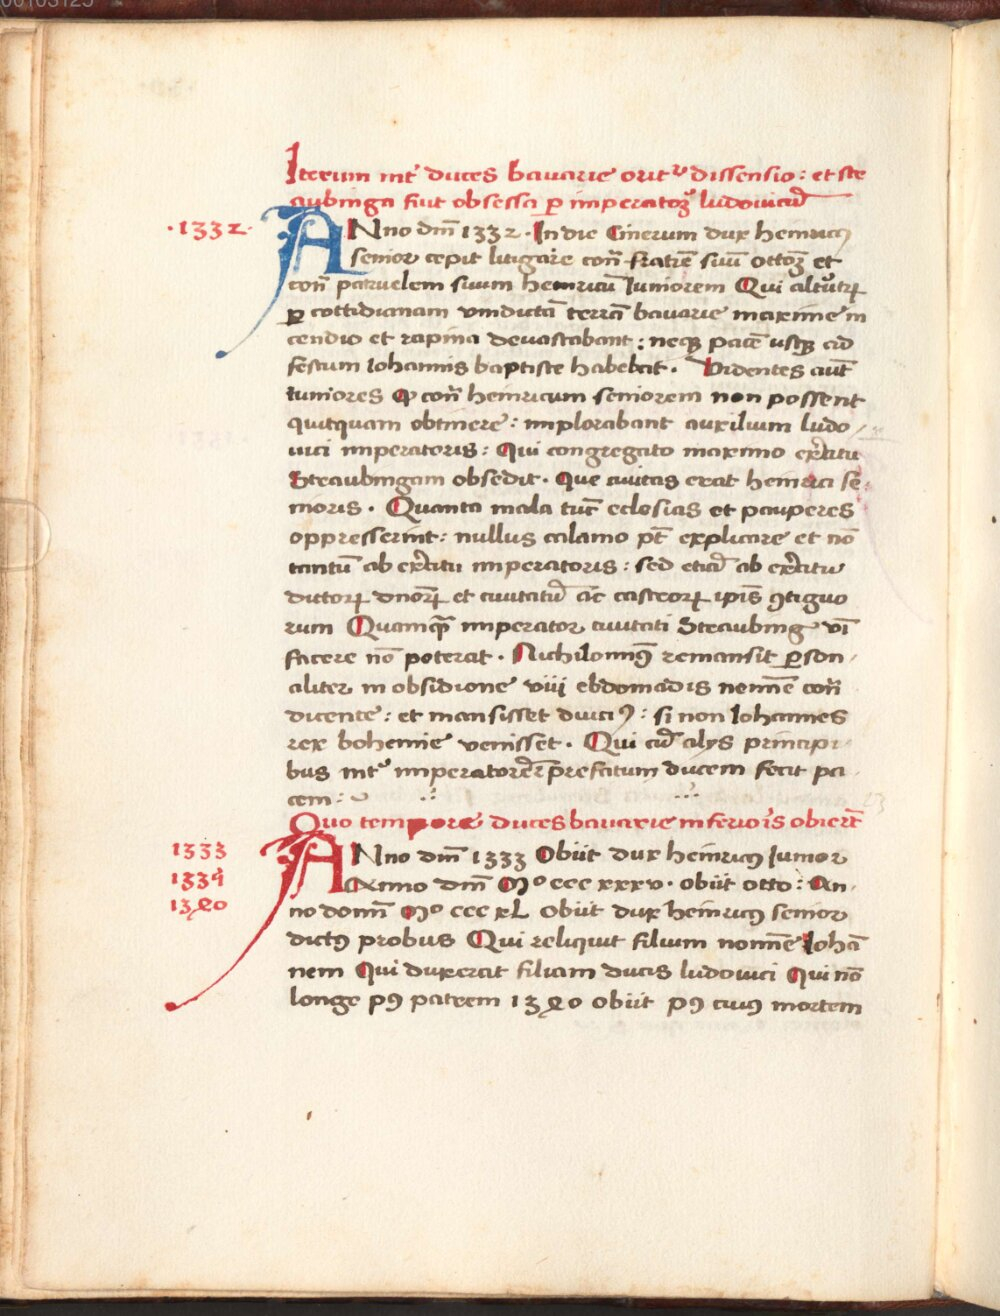 00103125
Iterum int' duces bavarie orit' dissensio: et ste
aubinga fuit obsessa ꝑ imperatoꝝ ludovicū
·1332·
ANno dnī 1332· In die Cinerum dux heinricꝯ
senior cepit litigare cont̄ fratrē suū ottoꝝ et
cont̄ patruelem suum heinricū Iuniorem Qui altutrꝝ
ꝑ cottidianam vindictā terrā bavarie maxime in
cendio et rapina devastabant: neqꝫ pacē usqꝫ ad
festum Iohannis baptiste habebat. Videntes aūt
iuniores ꝙ cont̄ heinricum seniorem non possent
quitquam obtinere: implorabant auxilium ludo
vici imperatoris: Qui congregato maximo exc̄itu
Straubingam obsedit. Que civitas erat heinrici se
nioris. Quanta mala tūc eclesias et pauperes
oppresserint: nullus calamo pt̄ explicare et nō
tantū ab exc̄itu imperatoris: sed etiā ab exc̄itu
dictorꝝ dnōrꝝ et civitatū ac castrorꝝ ipīs ꝯtiguo
rum Quamqᷓ imperator civitati Straubing vī
facere nō poterat. Nichilominꝰ remansit ꝑson
aliter in obsidione viii ebdomadis nemīe cont̄
dicente: et mansisset duciꝰ: si non Iohannes
rex bohemie venisset. Qui cū alys principi
bus int' imperatorē et prefatum ducem fecit pa
cem:
Quo tempore duces bavarie inferioris obierēt
1333
1334
1340
ANno dnī 1333 Obiit dux heinricꝯ Iunior
Anno dnī Mº ccc xxxv. obiit otto: An
no domī Mº ccc xL obiit dux heinricꝯ senior
dictꝯ probus Qui reliquit filium nomīe Iohā
nem Qui duxerat filiam ducis ludovici Qui nō
longe pꝰ patrem 1340 obiit pꝰ cuiꝯ mortem